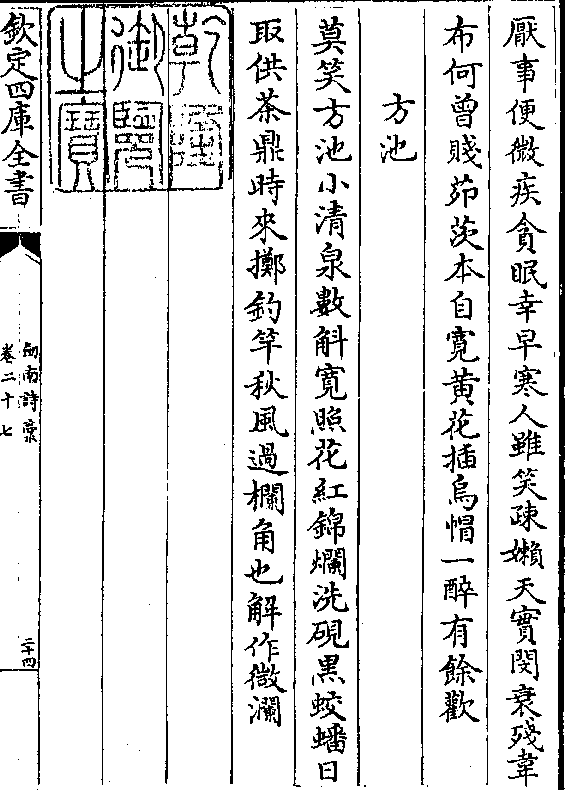 厭事便微疾貪眠幸早寒人雖笑疎嬾天實閔衰殘韋
布何曾賤茆茨本自寛黄花插烏帽一醉有餘歡
方池
莫笑方池小清泉數斛寛照花紅錦爛洗硯黑蛟蟠日
取供茶鼎時來擲釣竿秋風過欄角也解作微瀾
乾隆
御覽
之寶
欽定四庫全書
劒南詩藁
卷二十七
二十四